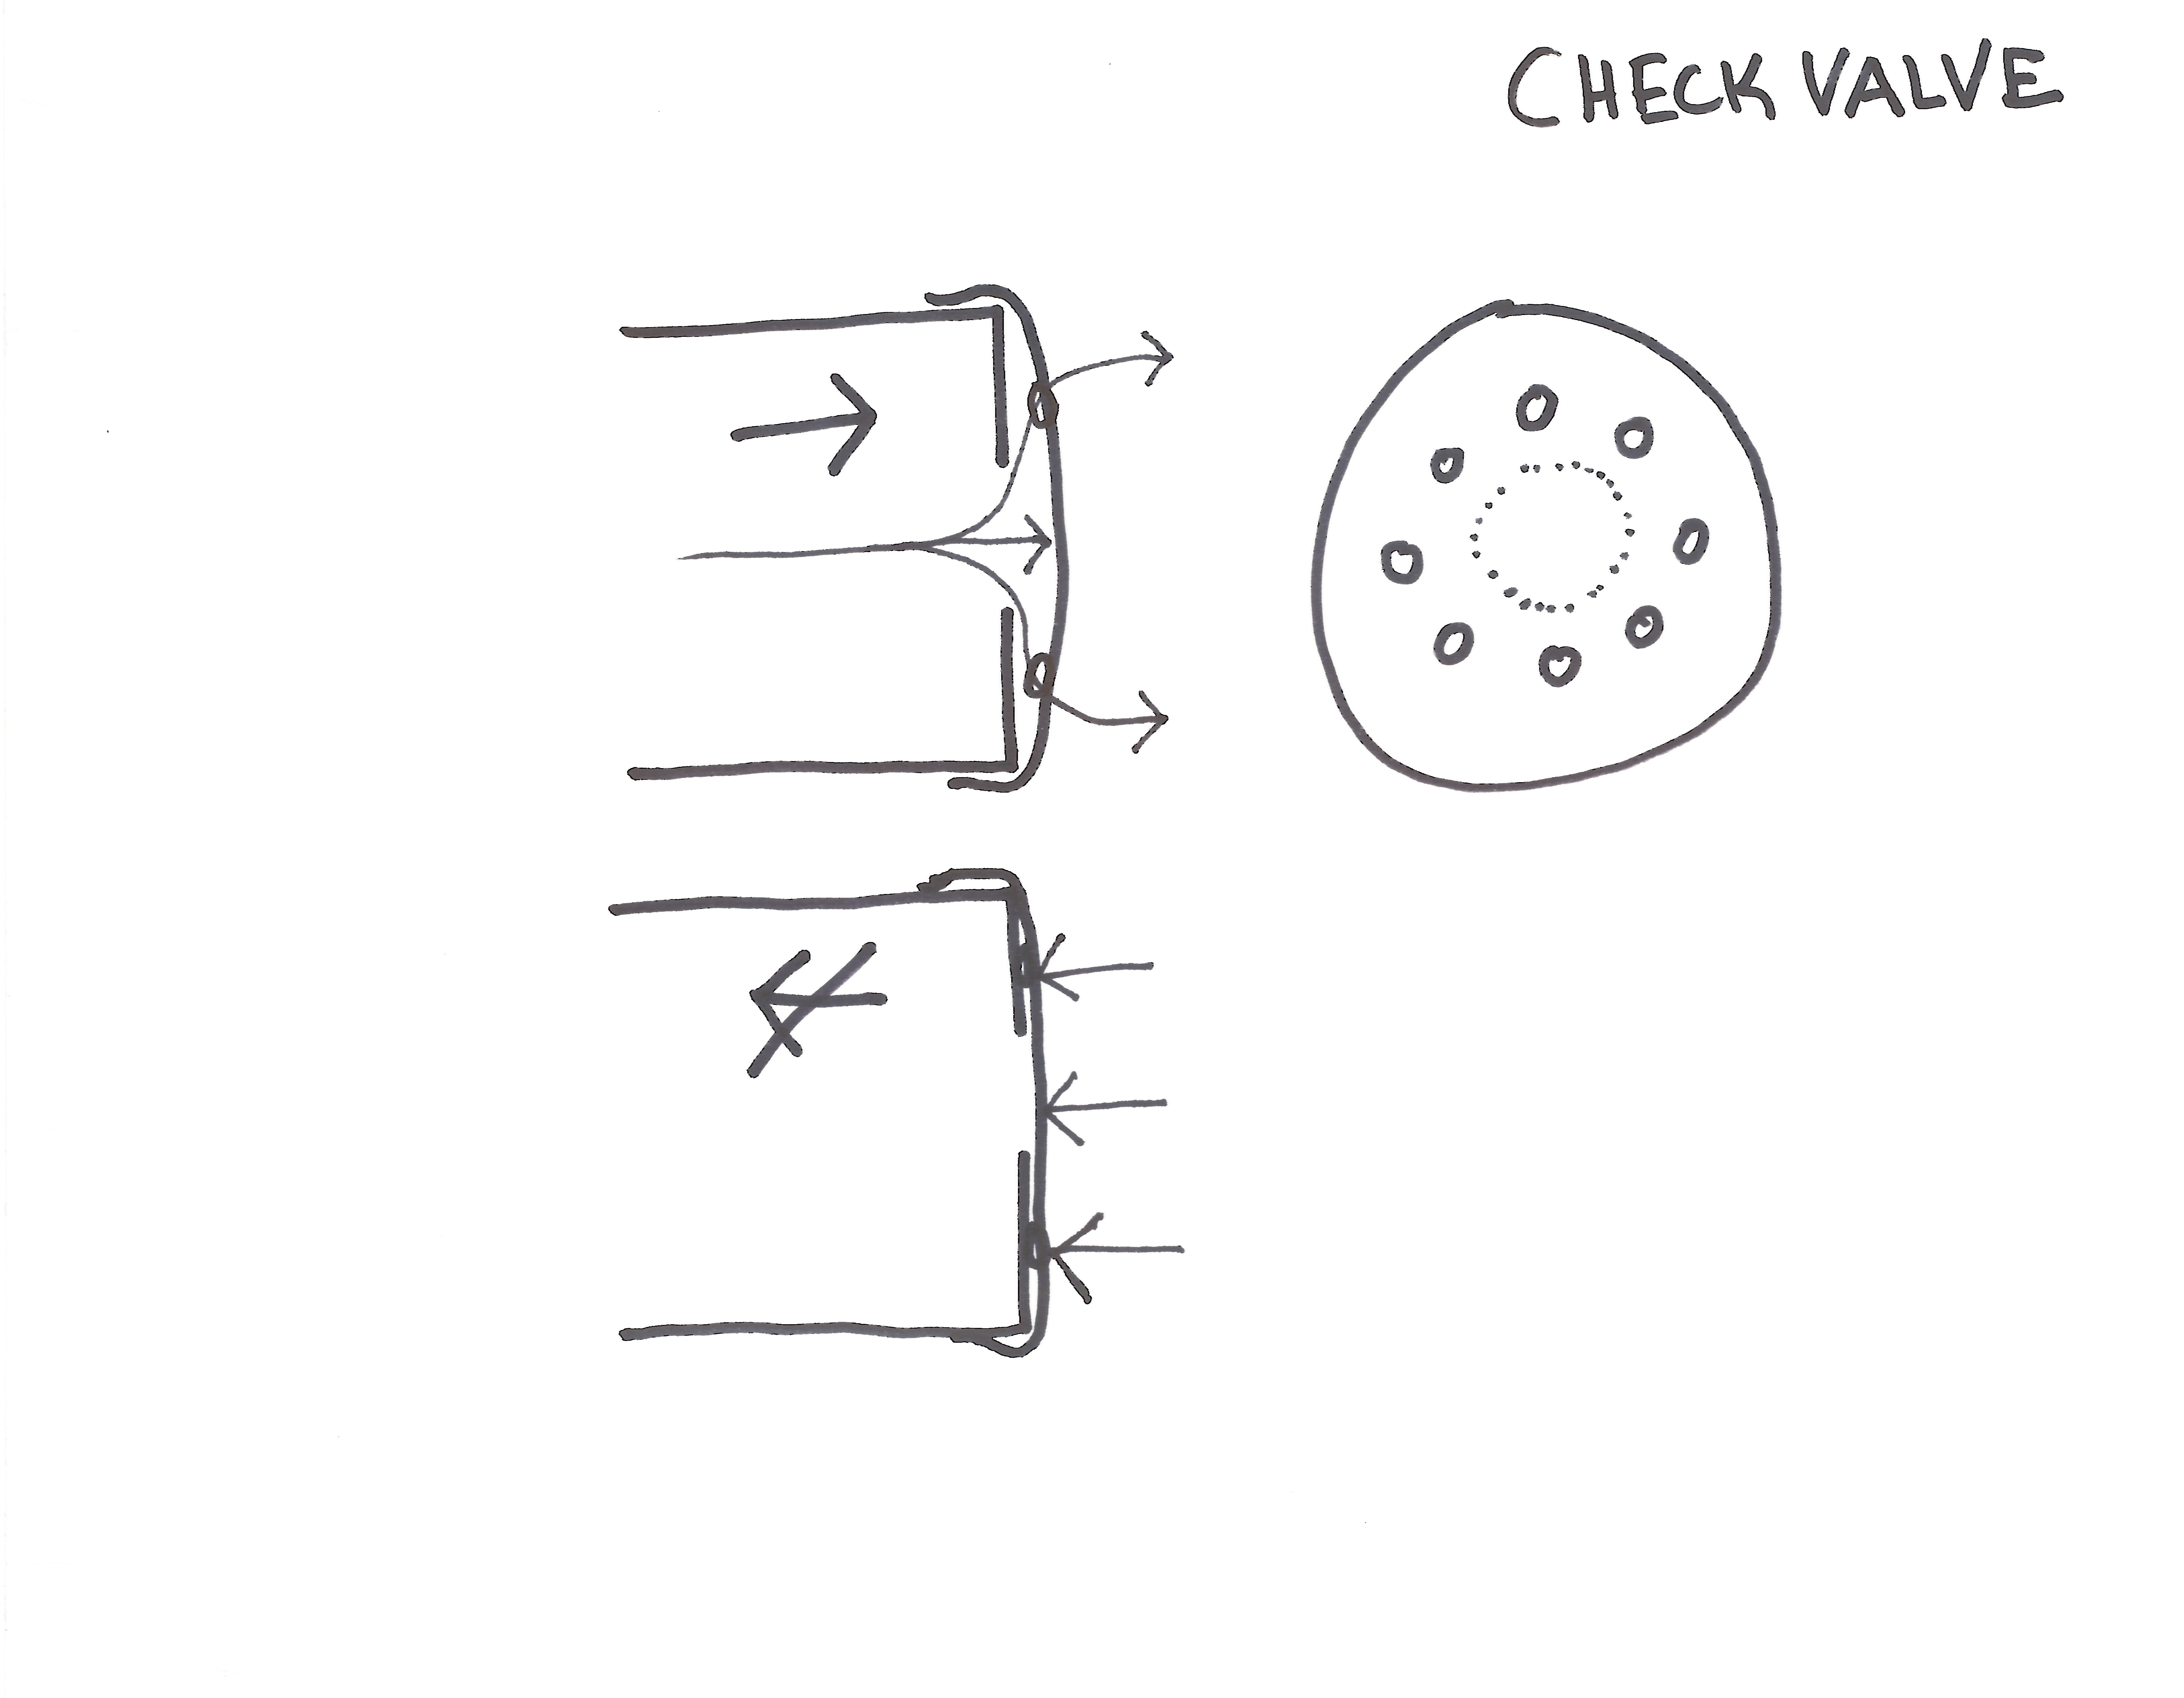 CHECK VALVE